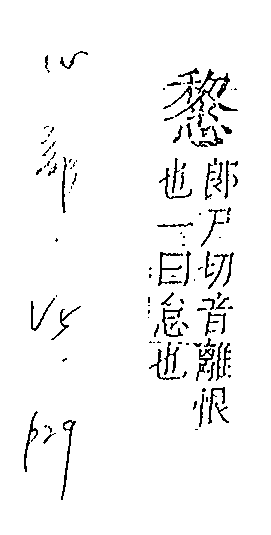 𢤂
郎尸切音離恨
也一曰怠也
心部.V5.p29